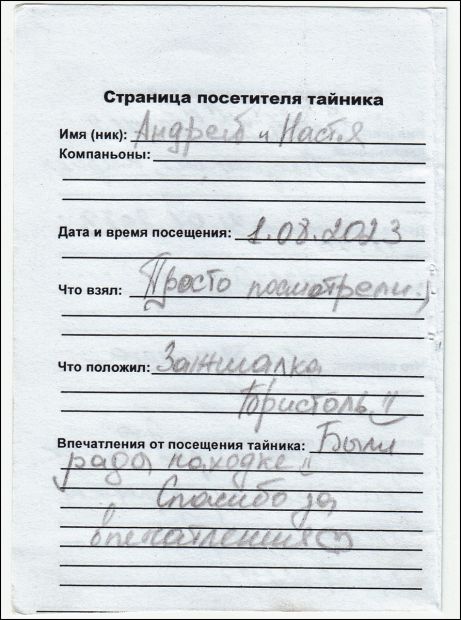 Страница посетителя тайника
Имя (ник): Андрей и Настя
Компаньоны:
Дата и время посещения: 1.08.2023
Что взял: Просто посмотрели :)
Что положил: Зажигалка
Бристоль
Впечатления от посещения тайника: Были
рады находке
Спасибо за
впечатления